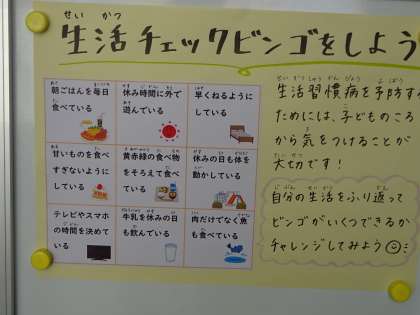 生活チェックビンゴをしよう
朝ごはんを毎日
食べている
休み時間に外で
遊んでいる
早くねるように
している
甘いものを食べ
すぎないように
している
黄赤緑の食べ物
をそろえて食べ
ている
休みの日も体を
動かしている
テレビやスマホ
の時間を決めて
いる
牛乳を休みの日
も飲んでいる
肉だけでなく魚
も食べている
生活習慣病を予防す
ためには、子どものころ
から気をつけることが
大切です!
自分の生活をふり返って
ビンゴがいくつできるか
チャレンジしてみよう